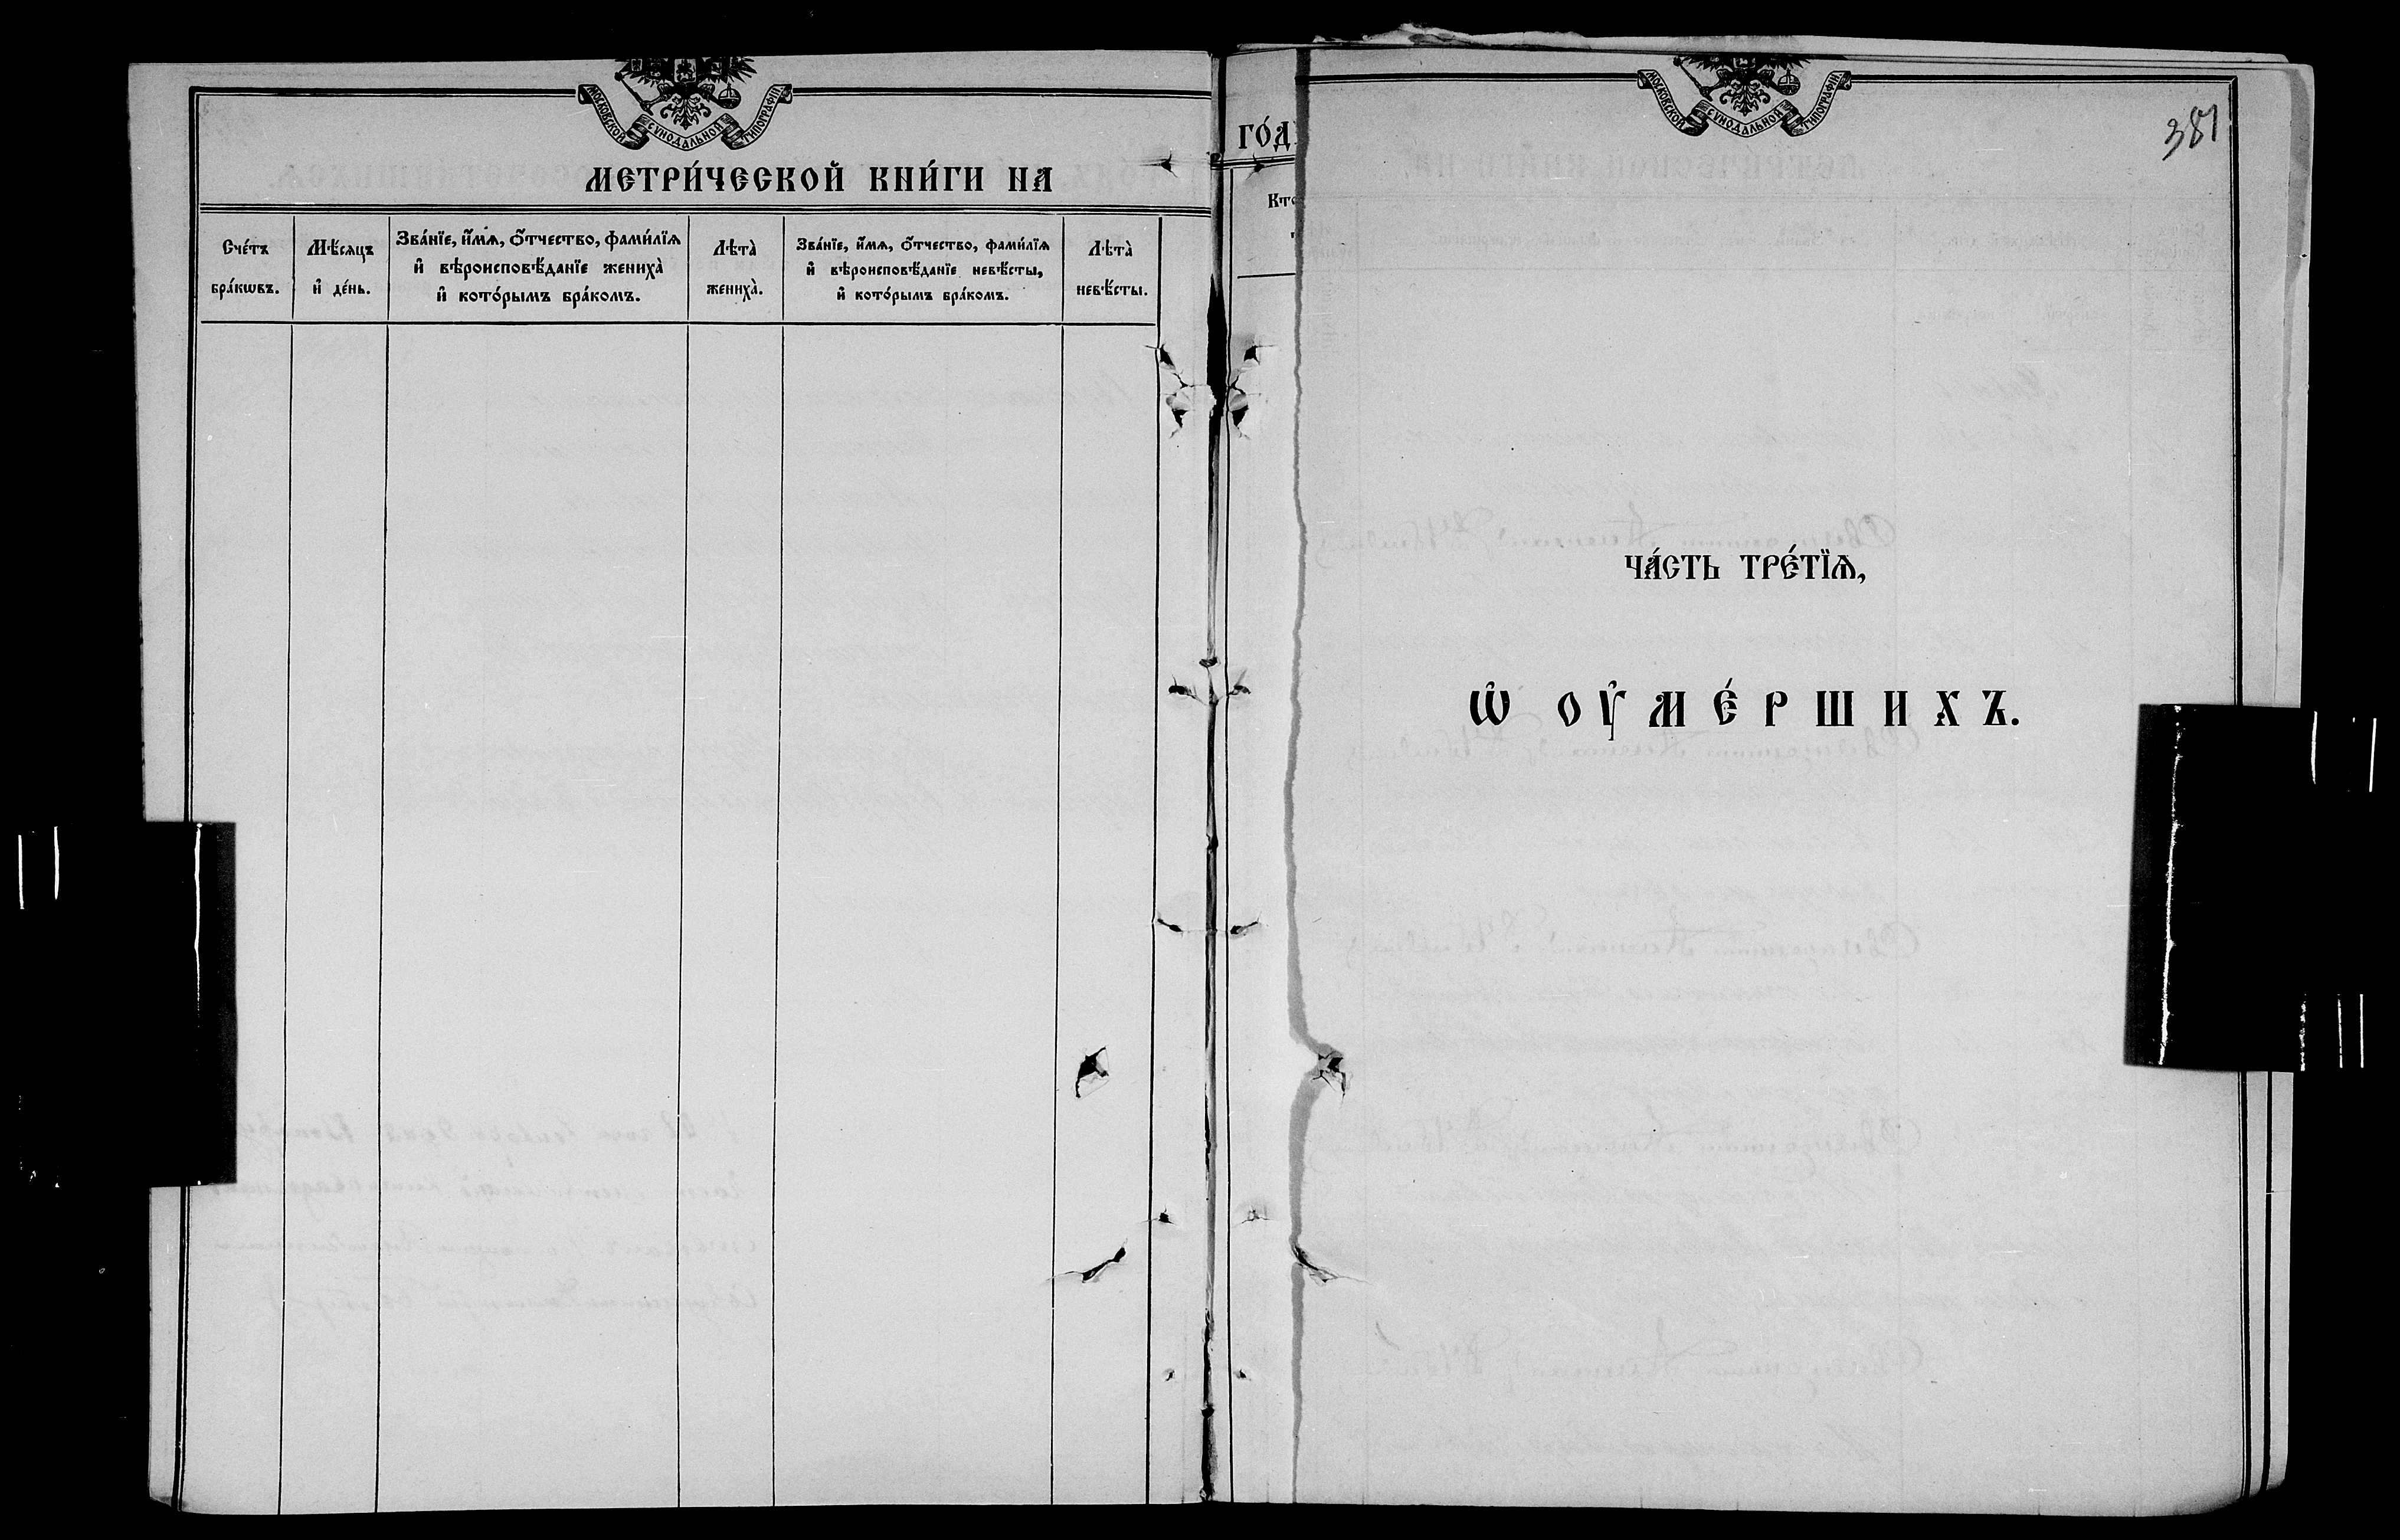 МОСКОВСКОЙ СѴНОДАЛЬНОЙ ТИПОГРАФІИ
МЕТРИ́ЧЕСКОЙ КНИ́ГИ НА
Сче́тъ
бра́кѡвъ.
Мѣ́сяцъ
и҆ де́нь.
Зва́нїе, и҆́мѧ, ѻ҆́тчество, фами́лїѧ
и҆ вѣроисповѣ́данїе женихà
и҆ кото́рымъ бра́комъ.
Лѣтà
женихà.
Зва́нїе, и҆́мѧ, ѻ҆́тчество, фами́лїѧ
и҆ вѣроисповѣ́данїе невѣ́сты,
и҆ кото́рымъ бра́комъ.
Лѣтà
невѣ́сты.
ГО́Д
Кто
МОСКОВСКОЙ СѴНОДАЛЬНОЙ ТИПОГРАФІИ
381
ЧА́СТЬ ТРЕ́ТЇѦ,
Ѡ҆ ОУ҆МЕ́РШИХЪ.